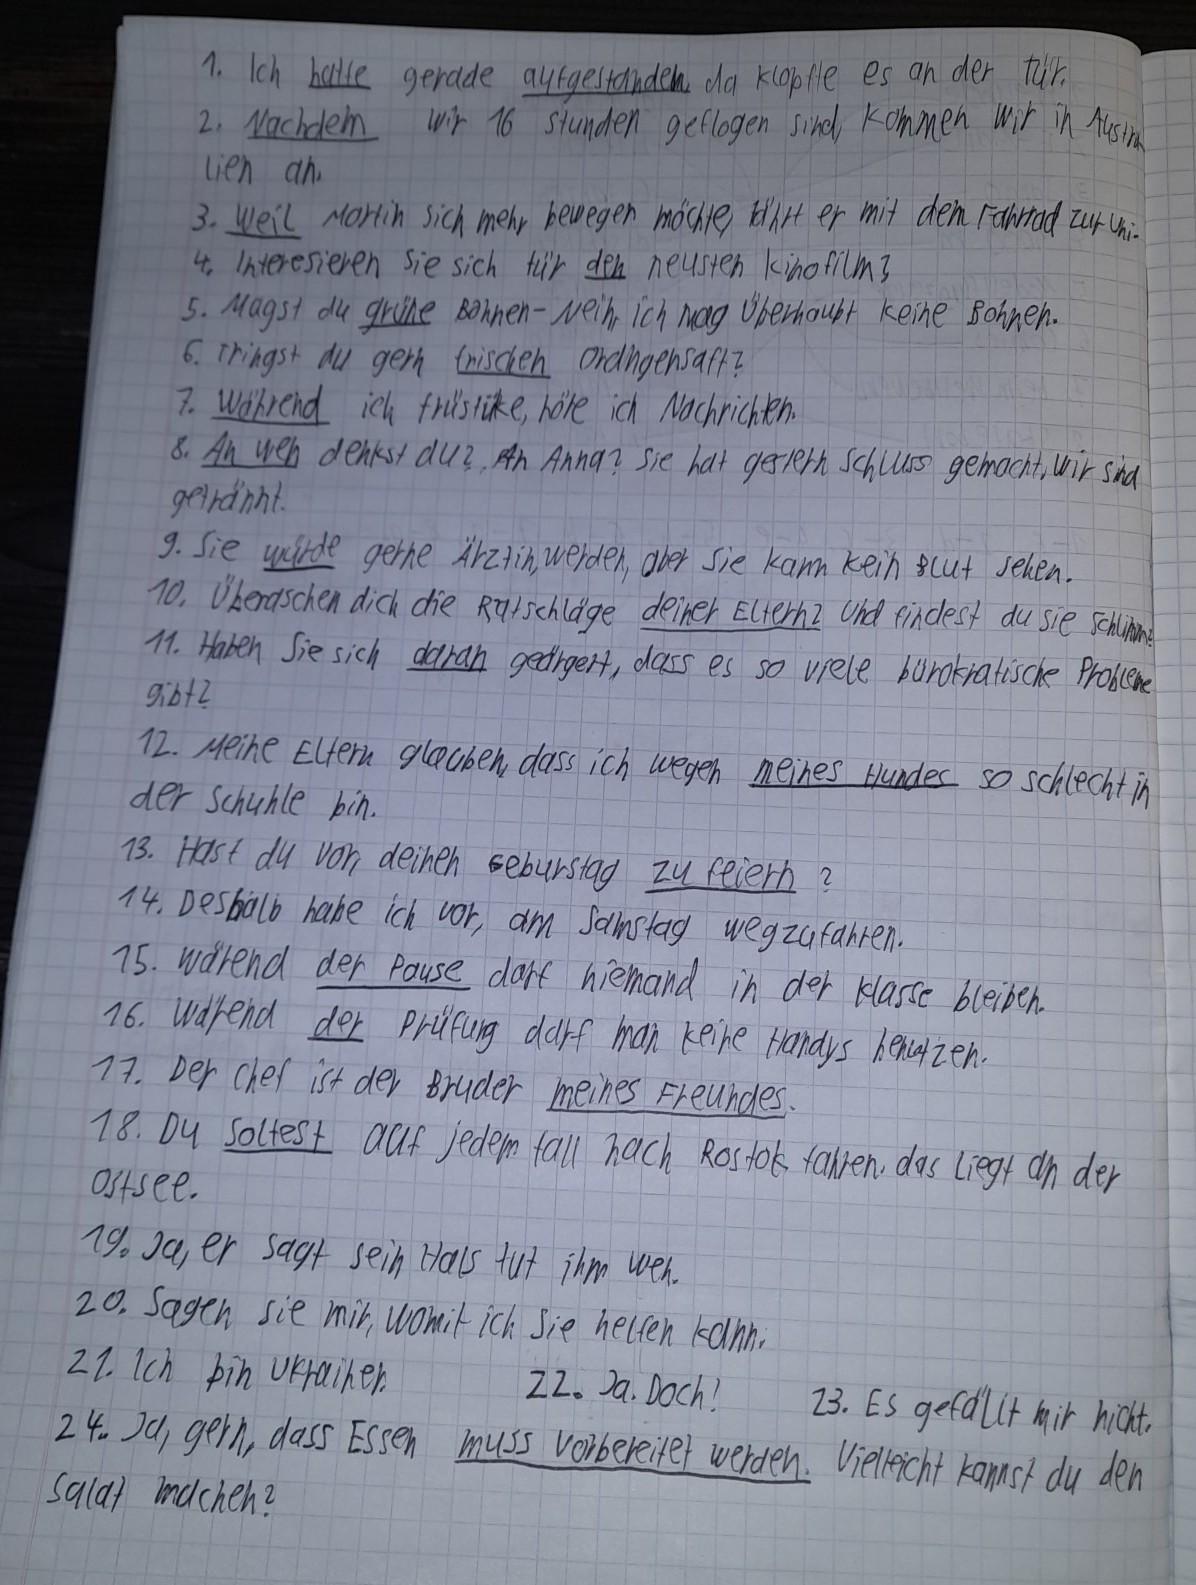 1. Ich hatte gerade aufgestanden, da klopfte es an der Tür.
2. Nachdem wir 16 stunden geflogen sind, kommen wir in Austra-
lien an.
3. Weil Martin sich mehr bewegen möchte, fährt er mit dem Fahrrad zur Uni.
4. Interesieren Sie sich für den neusten Kinofilm?
5. Magst du grüne Bohnen - Nein, ich mag überhaupt keine Bohnen.
6. Tringst du gern frischen Orangensaft?
7. Während ich früstüke, höre ich Nachrichten.
8. An wen denkst du? An Anna? Sie hat gestern schluss gemacht, wir sind
getrännt.
9. Sie würde gerne Ärztin, werden, aber sie kann kein Blut sehen.
10. Überaschen dich die Ratschläge deiner Eltern? Und findest du sie schlimm?
11. Haben Sie sich daran geärgert, dass es so viele bürokratische Probleme
gibt?
12. Meine Eltern glauben, dass ich wegen meines Hundes so schlecht in
der Schuhle bin.
13. Hast du vor, deinen Geburstag zu feiern?
14. Deshalb habe ich vor, am Samstag wegzufahren.
15. Wärend der Pause darf niemand in der Klasse bleiben.
16. Wärend der Prüfung darf man keine Handys benutzen.
17. Der Chef ist der Bruder meines Freundes.
18. Du soltest auf jedem fall nach Rostok fahren. das liegt an der
Ostsee.
19. Ja, er sagt sein Hals tut ihm weh.
20. Sagen sie mir, womit ich Sie helfen kann.
21. Ich bin Ukrainer. 22. Ja. Doch! 23. Es gefällt mir nicht.
24. Ja, gern, dass Essen muss vorbereitet werden. Vielleicht kannst du den
Salat machen?